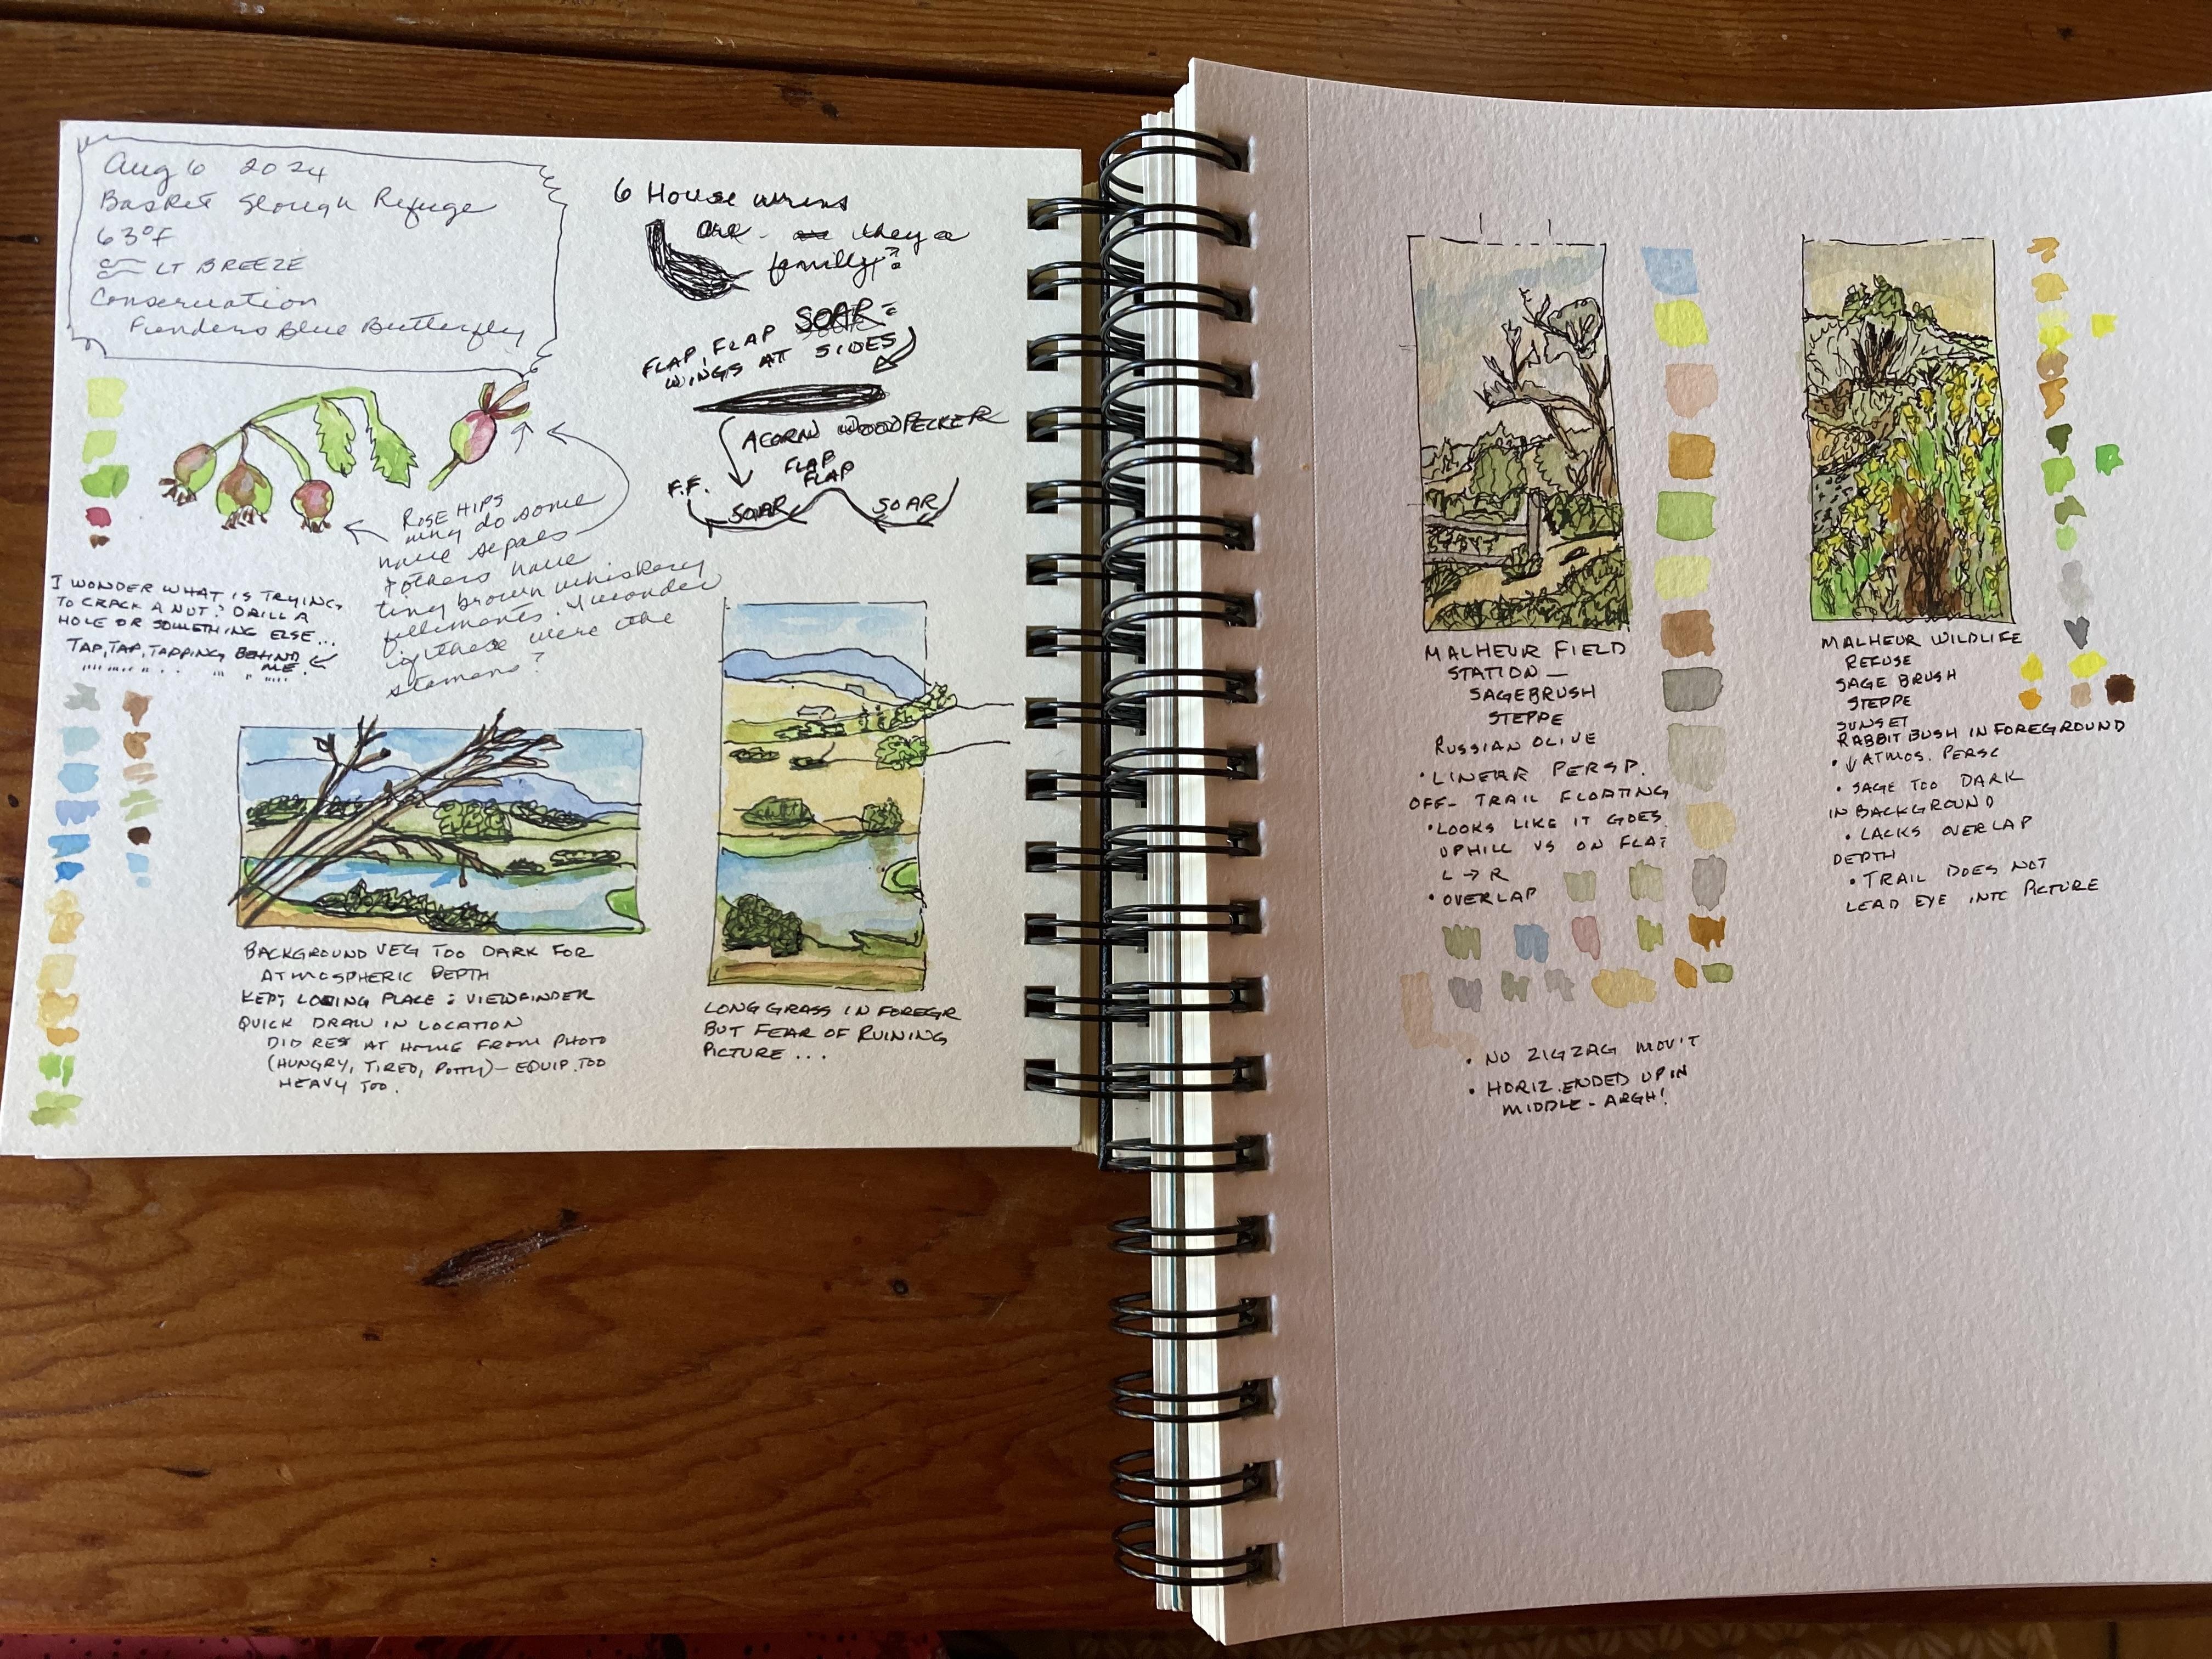 Aug 6 2024
Basket Slough Refuge
63°F
LT BREEZE
Conservation
Fenders Blue Butterfly
6 House wrens
are they a
family?
FLAP, FLAP SOAR =
WINGS AT SIDES
ACORN WOODPECKER
FLAP
FLAP
F.F.
SOAR
SOAR
ROSE HIPS
why do some
have sepals
+ others have
tiny brown whiskery
fillements. I wonder
if these were the
stamens?
I WONDER WHAT IS TRYING
TO CRACK A NUT? DRILL A
HOLE OR SOMETHING ELSE...
TAP, TAP, TAPPING BEHIND
ME.
BACKGROUND VEG TOO DARK FOR
ATMOSPHERIC DEPTH
KEPT LOSING PLACE : VIEWFINDER
QUICK DRAW IN LOCATION
DID REST AT HOME FROM PHOTO
(HUNGRY, TIRED, POTTY) - EQUIP. TOO
HEAVY TOO.
LONG GRASS IN FOREGR
BUT FEAR OF RUINING
PICTURE ...
MALHEUR FIELD
STATION —
SAGEBRUSH
STEPPE
RUSSIAN OLIVE
• LINEAR PERSP.
OFF - TRAIL FLOATING
• LOOKS LIKE IT GOES
UPHILL VS ON FLAT
L → R
• OVERLAP
• NO ZIGZAG MOV'T
• HORIZ. ENDED UP IN
MIDDLE - ARGH!
MALHEUR WILDLIFE
REFUGE
SAGE BRUSH
STEPPE
SUNSET
RABBIT BUSH IN FOREGROUND
• ↓ ATMOS. PERSC
• SAGE TOO DARK
IN BACKGROUND
• LACKS OVERLAP
DEPTH
• TRAIL DOES NOT
LEAD EYE INTO PICTURE